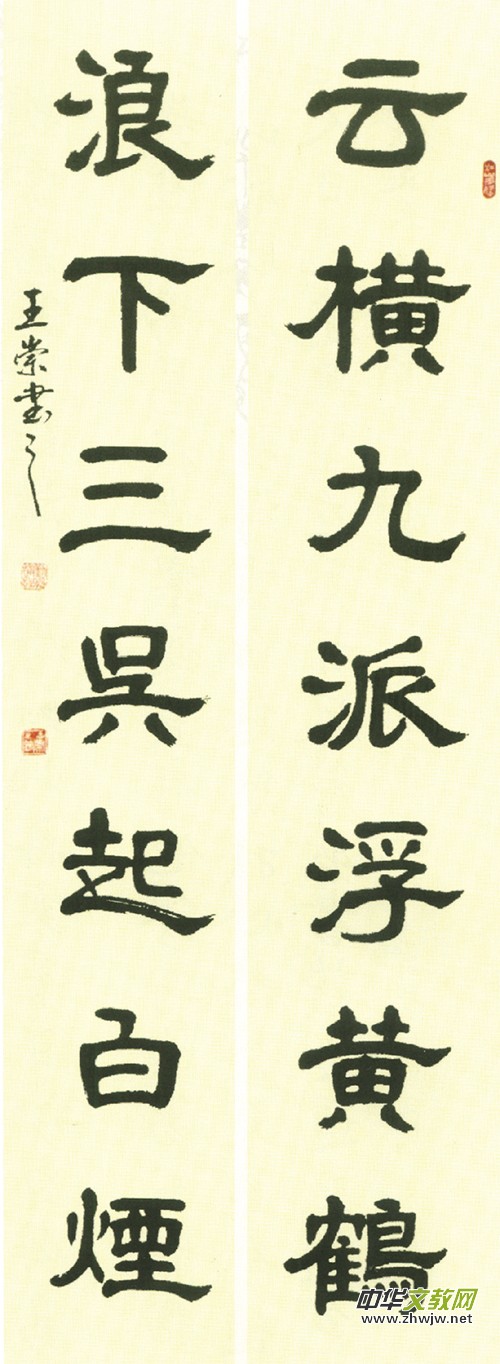 云横九派浮黄鶴
浪下三吴起白煙
王崇书之
中华文教网
www.zhwjw.net